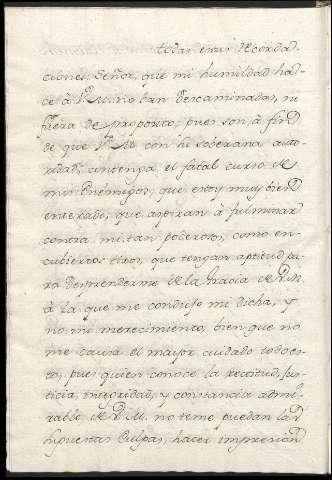 todas estas recordad-
ciones, Señor, que mi humildad ha-
ce à V. M. no ban descaminadas, ni
fuera de proposito; pues son à fin
de que V. M. con su soberana auto-
ridad, contenga el fatal curso de
mis Enemigos, que estoy muy bien
enterado, que aspiran à fulminar
contra mi tan poderosos, como en-
cubiertos tiros, que tengan aptitud pa-
ra desprenderme de la Gracia de V. M.
à la que me condujo mi dicha, y
no mi merecimiento, bien que no
me causa el mayor cuidado todo es-
to, pues quien conoce la rectitud, jus-
ticia, integridad, y constancia admi-
rable de V. M. no teme puedan las
supuestas Culpas, hacer impresion